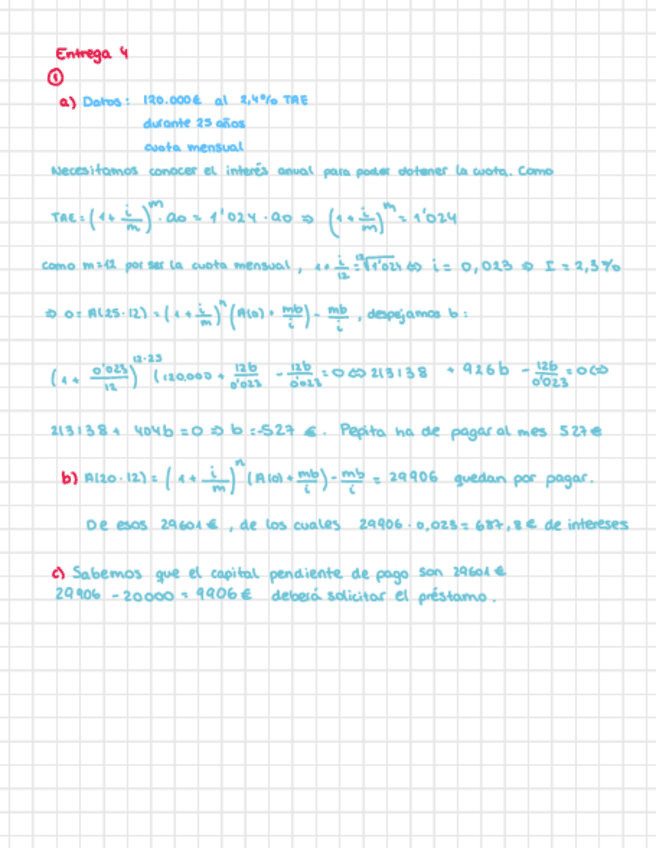 Entrega 4
①
a) Datos: 120.000€ al 2,4% TAE
durante 25 años
cuota mensual
Necesitamos conocer el interés anual para poder obtener la cuota. Como
TAE: (1+ i/m)^m · a0 = 1'024 · a0 ⇒ (1+ i/m)^m = 1'024
como m=12 por ser la cuota mensual, 1+ i/12 = ¹²√1'024 ⇔ i = 0,023 ⇒ I = 2,3%
⇒ 0 = A(25·12) = (1+ i/m)^n (A(0) + mb/i) - mb/i, despejamos b:
(1+ 0'023/12)^12·25 (120.000 + 12b/0'023 - 12b/0'023 = 0 ⇔ 213138 + 926b - 12b/0'023 = 0 ⇔
213138 + 404b = 0 ⇒ b = -527 €. Pepita ha de pagar al mes 527€
b) A(20·12) = (1+ i/m)^n (A(0) + mb/i) - mb/i = 29906 quedan por pagar.
De esos 29601€, de los cuales 29906 · 0,023 = 687,8€ de intereses
c) Sabemos que el capital pendiente de pago son 29601€
29906 - 20000 = 9906€ deberá solicitar el préstamo.